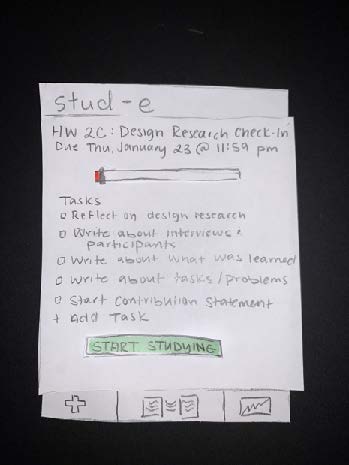 stud-e
HW 2C: Design Research Check-In
Due Thu, January 23 @ 11:59 pm
Tasks
Reflect on design research
Write about interviews &
participants
Write about what was learned
Write about tasks/problems
Start Contribution Statement
+ Add Task
START STUDYING